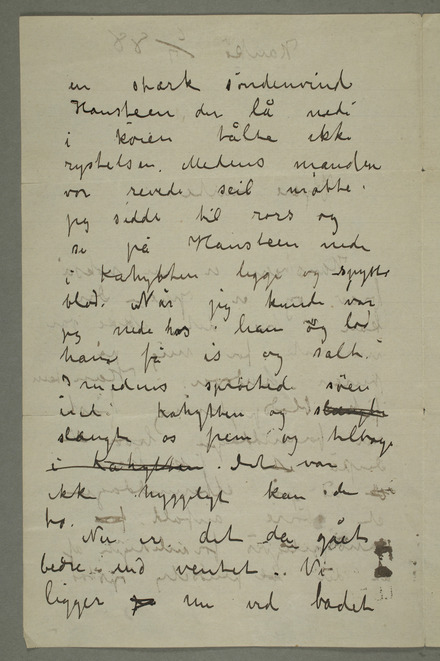 en stærk søndenvind
Hansteen der lå nedi
i køien tålte ikke
rystelsen. Medens manden
vor revede seil måtte
jeg sidde til rors og
se på Hansteen nede
i Kahytten ligge og spytte
blod. Når jeg kunde var
jeg nede hos ham og lod
ham få is og salt.
Imedens sprøitede søen
ind i kahytten og slængte
slængte os frem og tilbage
i Kahytten. Det var
ikke hyggeligt kan De
tro.
Nu er det da gået
bedre end ventet.. Vi
ligger nu ved badet